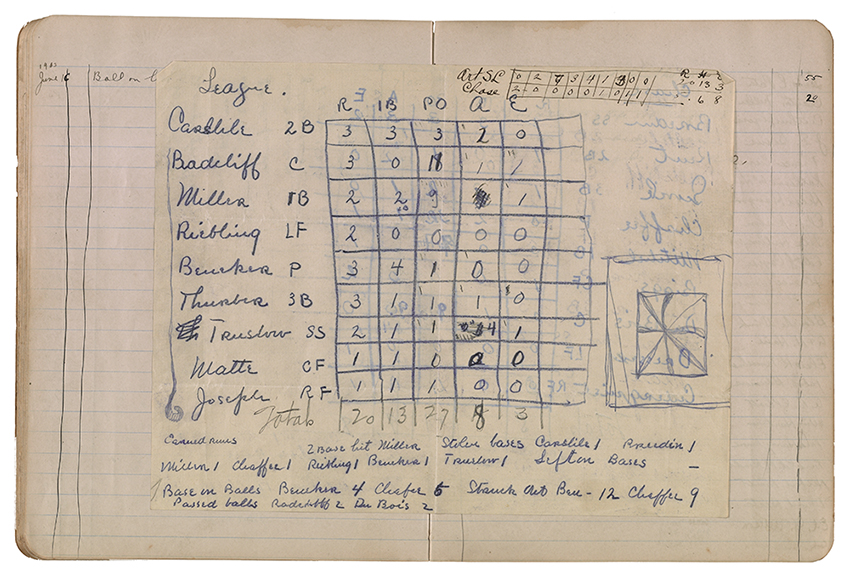 June 6 Ball on
League.
Art SL 0 2 7 3 4 1 3 0 0 20 13 3
Chase 2 0 0 0 0 1 0 1 1 6 8
R H E
R 1B PO A E
Casslile 2B 3 3 3 2 0
Radcliff C 3 0 18 1 1
Miller 1B 2 2 9 1
Riebling LF 2 0 0 0 0
Beucker P 3 4 1 0 0
Thurber 3B 3 1 1 1 0
Truslow SS 2 1 1 4 1
Matte CF 1 1 0 0 0
Joseph RF 1 1 1 0 0
Totals 20 13 27 8 3
Earned runs
2 Base hit Miller Stolen bases Casslile 1 Breedin 1
Miller 1 Chaffee 1 Riebling 1 Beucker 1 Truslow 1 Left on Bases —
Base on Balls Beucker 4 Chafer 5 Struck Out Beu - 12 Chaffer 9
Passed balls Radcliff 2 Du Bois 2
55
20